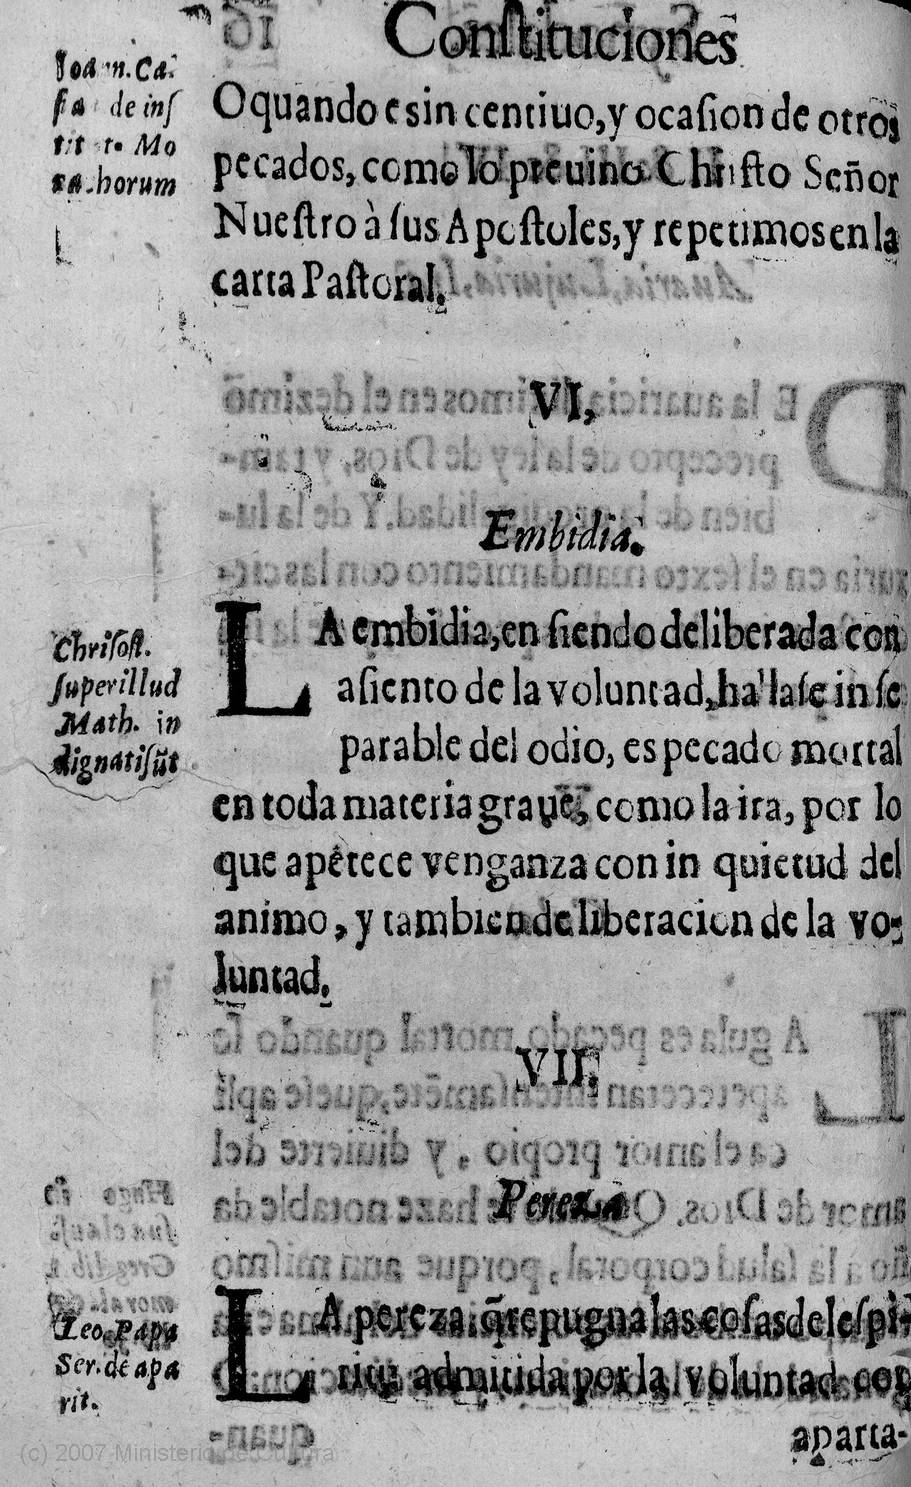 Constituciones
Ioan. Ca.
de inſ
Mo
horum
O quando e sin centiuo, y ocaſion de otros
pecados, como lo preuino Chriſto Señor
Nueſtro à ſus Apoſtoles, y repetimos en la
carta Paſtoral.
VI,
Embidia.
Chriſoſt.
ſuper illud
Math. in
dignati ſũt
LA embidia, en ſiendo deliberada con
aſiento de la voluntad, hallaſe in ſe
parable del odio, es pecado mortal
en toda materia graue, como la ira, por lo
que apêtece venganza con in quietud del
animo, y tambien deliberacion de la vo-
luntad.
VII.
Pereza
Leo. Papa
Ser. de apa
rit.
LA pereza, q̃ repugna las coſas del eſpi-
ritu admitida por la voluntad con
aparta-
(c) 2007 Ministerio de Cultura